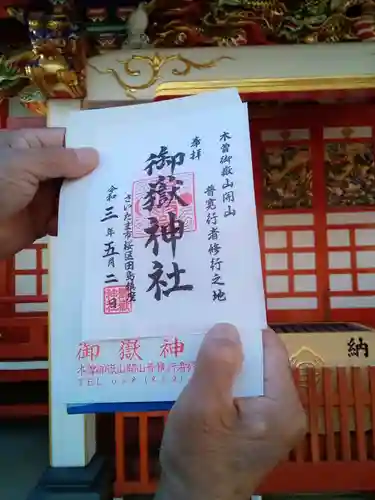 木曽御嶽山開山
普寛行者修行之地
奉拝
御嶽神社
さいたま市桜区田島
令和三年五月二日
御嶽神
木曽御嶽山開山普寛行者修
TEL
納